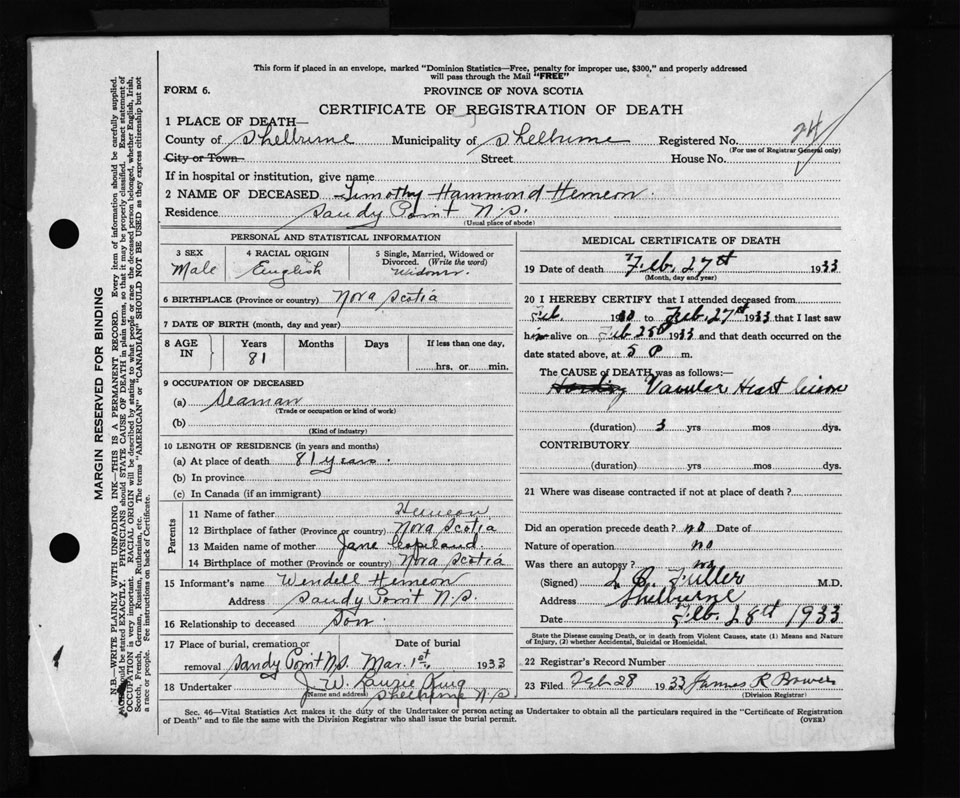 This form if placed in an envelope, marked "Dominion Statistics—Free, penalty for improper use, $300," and properly addressed
will pass through the Mail "FREE"
FORM 6.
PROVINCE OF NOVA SCOTIA
CERTIFICATE OF REGISTRATION OF DEATH
1 PLACE OF DEATH—
County of Shelburne Municipality of Shelburne Registered No. 24
(For use of Registrar General only)
City or Town Street House No.
If in hospital or institution, give name
2 NAME OF DECEASED Timothy Hammond Hemeon
Residence Sandy Point N.S.
(Usual place of abode)
PERSONAL AND STATISTICAL INFORMATION
3 SEX 4 RACIAL ORIGIN 5 Single, Married, Widowed or
Divorced. (Write the word)
Male English Widower
6 BIRTHPLACE (Province or country) Nova Scotia
7 DATE OF BIRTH (month, day and year)
8 AGE IN Years Months Days If less than one day,
81 hrs. or min.
9 OCCUPATION OF DECEASED
(a) Seaman
(Trade or occupation or kind of work)
(b)
(Kind of industry)
10 LENGTH OF RESIDENCE (in years and months)
(a) At place of death 81 years.
(b) In province
(c) In Canada (if an immigrant)
Parents
11 Name of father Hemeon
12 Birthplace of father (Province or country) Nova Scotia
13 Maiden name of mother Jane Copeland
14 Birthplace of mother (Province or country) Nova Scotia
15 Informant's name Wendell Hemeon
Address Sandy Point N.S.
16 Relationship to deceased Son.
17 Place of burial, cremation or Date of burial
removal Sandy Point N.S. Mar. 1st 1933
18 Undertaker J. W. King
Name and address Shelburne N.S.
MEDICAL CERTIFICATE OF DEATH
19 Date of death Feb. 27th 1933
(Month, day and year)
20 I HEREBY CERTIFY that I attended deceased from
Feb. 19 to Feb. 27th 1933 that I last saw
him alive on Feb 25th 1933 and that death occurred on the
date stated above, at 5 P m.
The CAUSE of DEATH was as follows:—
Valvular Heart
(duration) 3 yrs mos dys.
CONTRIBUTORY
(duration) yrs mos dys.
21 Where was disease contracted if not at place of death?
Did an operation precede death? no Date of
Nature of operation no
Was there an autopsy? no
(Signed) L. B. Fuller M.D.
Address Shelburne
Date Feb. 28th 1933
State the Disease causing Death, or in death from Violent Causes, state (1) Means and Nature
of Injury, (2) whether Accidental, Suicidal or Homicidal.
22 Registrar's Record Number
23 Filed Feb 28 1933 James R Bower
(Division Registrar)
Sec. 46—Vital Statistics Act makes it the duty of the Undertaker or person acting as Undertaker to obtain all the particulars required in the "Certificate of Registration
of Death" and to file the same with the Division Registrar who shall issue the burial permit.
(OVER)
MARGIN RESERVED FOR BINDING
N.B.—WRITE PLAINLY WITH UNFADING INK—THIS IS A PERMANENT RECORD. Every item of information should be carefully supplied.
AGE should be stated EXACTLY. PHYSICIANS should STATE CAUSE OF DEATH in plain terms, so that it may be properly classified. Exact statement of
OCCUPATION is very important. RACIAL ORIGIN will be described by stating to what people or race the deceased person belonged, whether English, Irish,
Scotch, French, German, Russian, Ruthenian, etc. The terms "AMERICAN" or "CANADIAN" SHOULD NOT BE USED as they express citizenship but not
a race or people. See instructions on back of Certificate.